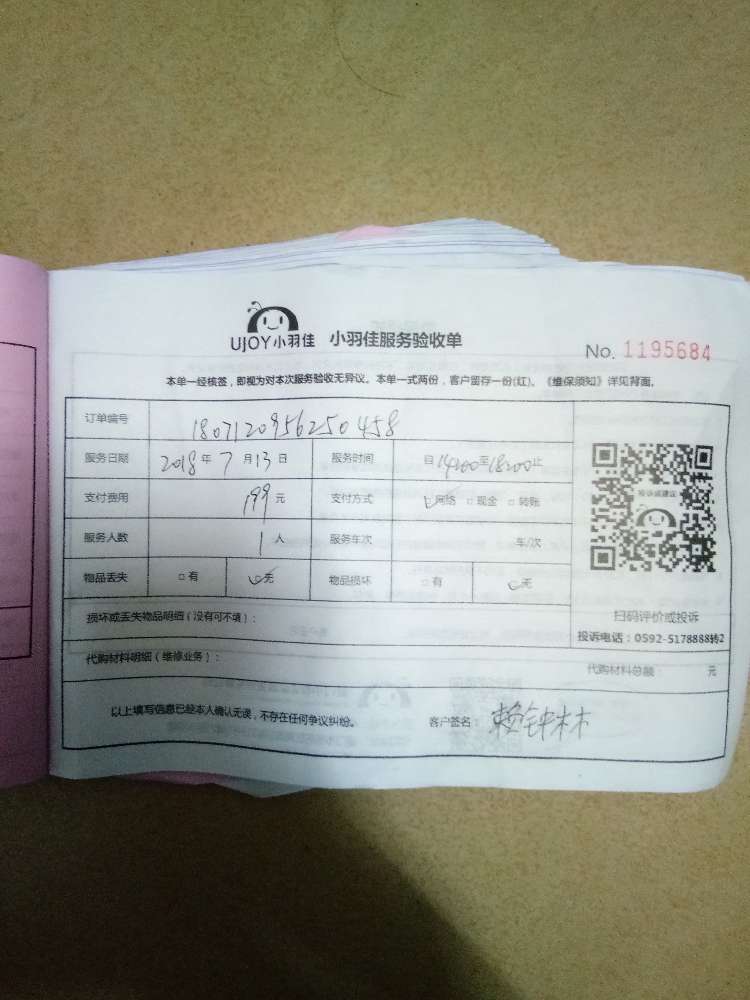 UJOY小羽佳 小羽佳服务验收单
No. 1195684
本单一经核签，即视为对本次服务验收无异议。本单一式两份，客户留存一份(红)。《维保须知》详见背面。
订单编号 1807120956250458
服务日期 2018年7月13日 服务时间 自14:00至18:00止
支付费用 199元 支付方式 网络 □现金 □转账
服务人数 1人 服务车次 车/次
物品丢失 □有 无 物品损坏 □有 无
投诉或建议
扫码评价或投诉
投诉电话：0592-5178888转2
损坏或丢失物品明细（没有可不填）：
代购材料明细（维修业务）： 代购材料总额： 元
以上填写信息已经本人确认无误，不存在任何争议纠纷。 客户签名：赖钟林